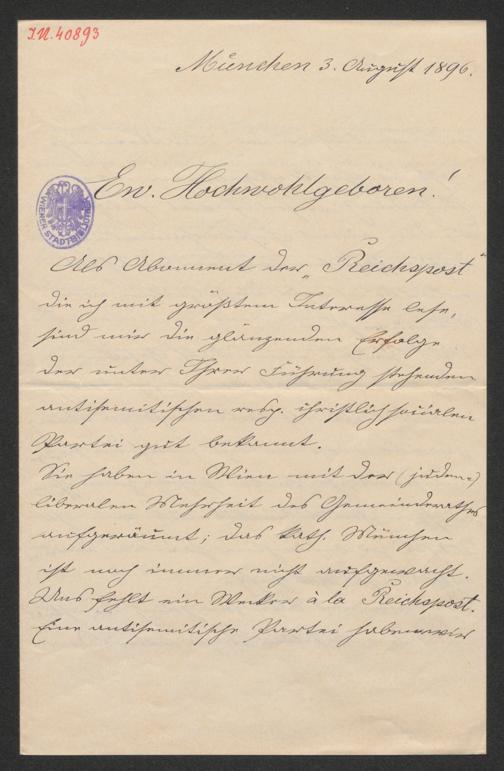 I.N. 40893
München 3. August 1896.
Ew. Hochwohlgeboren!
WIENER STADTBIBLIOTHEK
Als Abonnent der „Reichspost“
die ich mit größtem Interesse lese,
sind mir die glänzenden Erfolge
der unter Ihrer Führung stehenden
antisemitischen resp. christlichsocialen
Partei gut bekannt.
Sie haben in Wien mit der (juden-)
liberalen Mehrheit des Gemeinderathes
aufgeräumt; das kath. München
ist noch immer nicht aufgewacht.
Uns fehlt ein Wecker à la Reichspost.
Eine antisemitische Partei haben wir